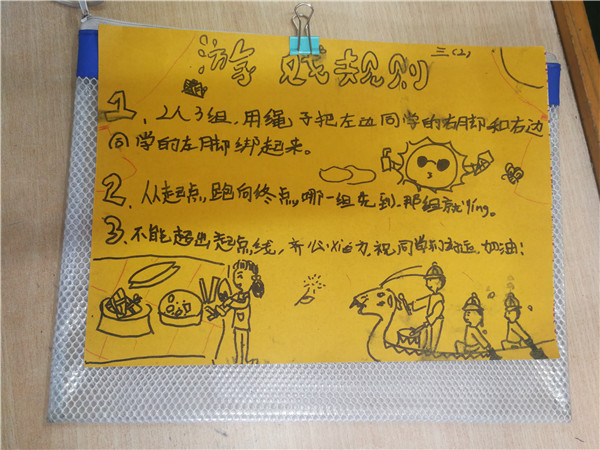 游戏规则
三(2)
1、2人3组,用绳子把左边同学的右脚和右边
同学的左脚绑起来。
2、从起点,跑向终点,哪一组先到,那组就ying。
3、不能超出起点线,齐心xie力,祝同学们 加油!